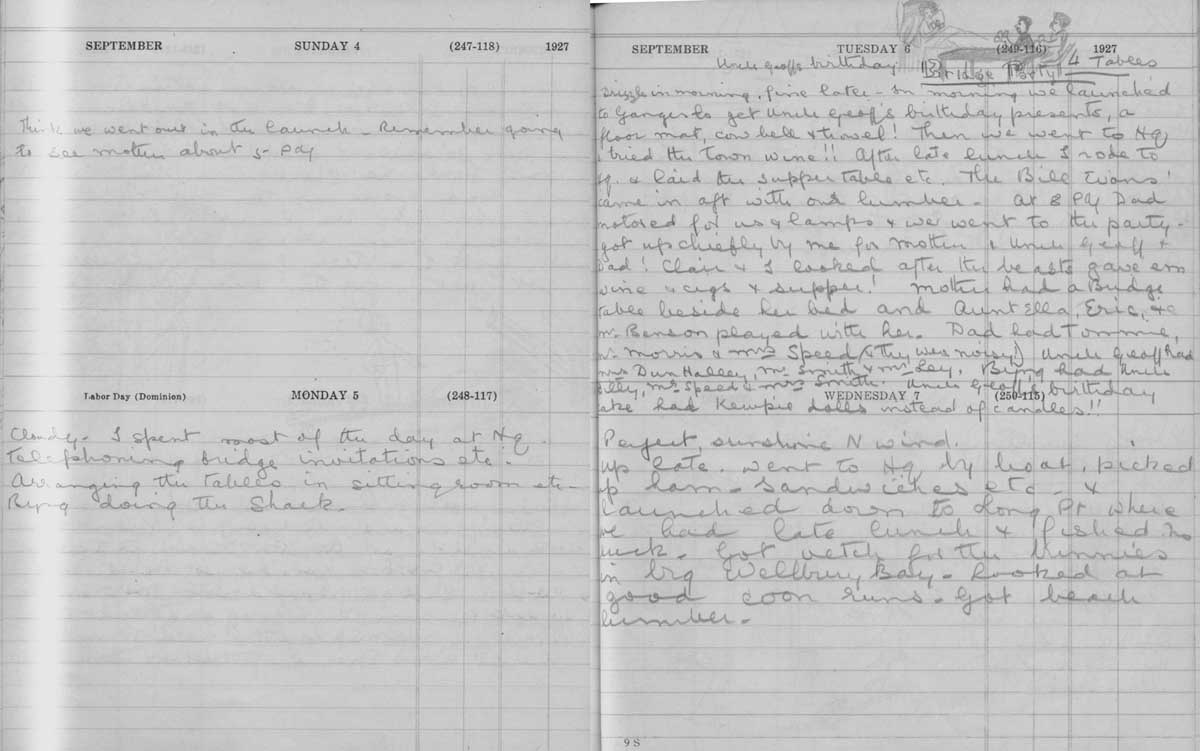 SEPTEMBER SUNDAY 4 (247-118) 1927
Think we went out in the launch - Remember going
to see mother about 5- PM
Labor Day (Dominion) MONDAY 5 (248-117)
Cloudy. I spent most of the day at Hq
telephoning bridge invitations etc.
Arranging the tables in sitting room etc-
Byng doing the Shack.
SEPTEMBER TUESDAY 6 (249-116) 1927
Uncle Geoffs birthday Bridge Party 4 Tables
drizzle in morning, fine later - In morning we launched
to Ganges to get Uncle Geoff's birthday presents, a
floor mat, cow bell & trowel! Then we went to Hq
tried the Town wine!! After late lunch I rode to
Hq. & laid the supper table etc. The Bill Evans'
came in aft with our lumber - at 8 PM Dad
motored for us & lamps & we went to the party -
got up chiefly by me for mother & Uncle Geoff &
Dad! Clair & I looked after the beasts gave em
wine & cigs & supper! Mother had a Bridge
table beside her bed and Aunt Ella, Eric, &
Mr. Benson played with her. Dad had Tommie,
Mr. Morris & Mrs Speed (& they was noisy!) Uncle Geoff had
Mrs Dun Halley, Mr Smith & Mr Ley. Byng had Uncle
Mr Speed & Mrs Smith. Uncle Geoff's birthday
WEDNESDAY 7 (250-115)
cake had Kewpie dolls instead of candles!!
Perfect, sunshine N wind.
up late. went to Hq by boat, picked
up ham - sandwiches etc - &
launched down to Long Pt where
we had late lunch & fished no
luck - Got vetch for the bunnies
in big Wellbury Bay - looked at
good coon runs - Got beach
lumber -
9 S